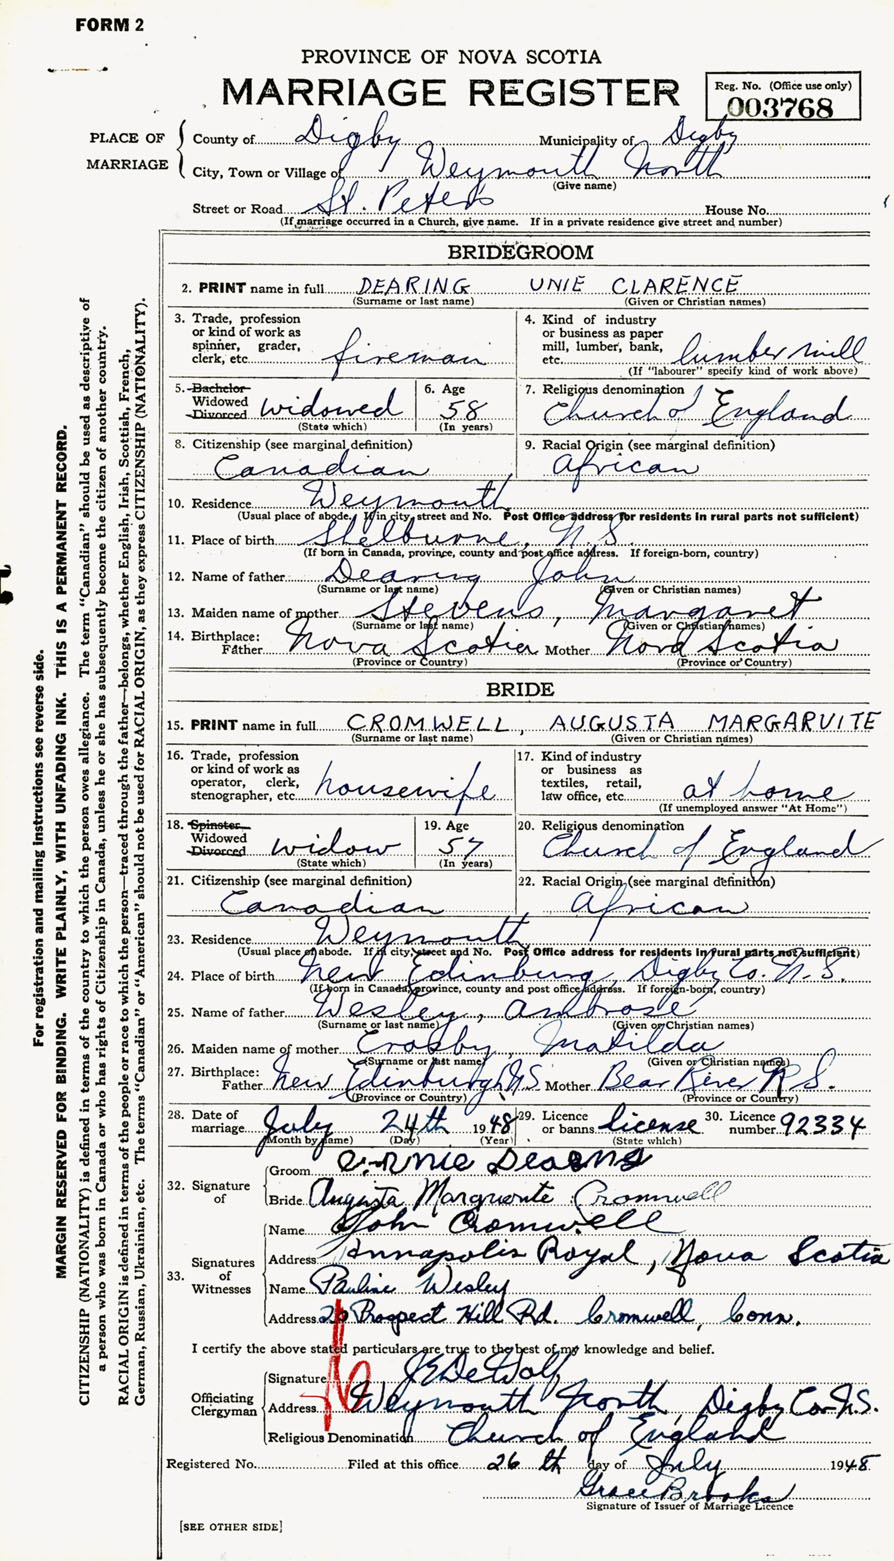 FORM 2
PROVINCE OF NOVA SCOTIA
MARRIAGE REGISTER
Reg. No. (Office use only)
003768
PLACE OF MARRIAGE
County of Digby Municipality of Digby
City, Town or Village of Weymouth North
(Give name)
Street or Road St. Peters House No.
(If marriage occurred in a Church, give name. If in a private residence give street and number)
BRIDEGROOM
2. PRINT name in full DEARING UNIE CLARENCE
(Surname or last name) (Given or Christian names)
3. Trade, profession or kind of work as spinner, grader, clerk, etc. fireman
4. Kind of industry or business as paper mill, lumber, bank, etc. lumber mill
(If "labourer" specify kind of work above)
5. Bachelor Widowed Divorced widowed
(State which)
6. Age 58
(In years)
7. Religious denomination Church of England
8. Citizenship (see marginal definition) Canadian
9. Racial Origin (see marginal definition) African
10. Residence Weymouth
(Usual place of abode. If in city, street and No. Post Office address for residents in rural parts not sufficient)
11. Place of birth Shelburne, N.S.
(If born in Canada, province, county and post office address. If foreign-born, country)
12. Name of father Dearing John
(Surname or last name) (Given or Christian names)
13. Maiden name of mother Stevens, Margaret
(Surname or last name) (Given or Christian names)
14. Birthplace: Father Nova Scotia Mother Nova Scotia
(Province or Country) (Province or Country)
BRIDE
15. PRINT name in full CROMWELL, AUGUSTA MARGARUITE
(Surname or last name) (Given or Christian names)
16. Trade, profession or kind of work as operator, clerk, stenographer, etc. housewife
17. Kind of industry or business as textiles, retail, law office, etc. at home
(If unemployed answer "At Home")
18. Spinster Widowed Divorced widow
(State which)
19. Age 57
(In years)
20. Religious denomination Church of England
21. Citizenship (see marginal definition) Canadian
22. Racial Origin (see marginal definition) African
23. Residence Weymouth
(Usual place of abode. If in city, street and No. Post Office address for residents in rural parts not sufficient)
24. Place of birth New Edinburg, Digby Co. N.S.
(If born in Canada, province, county and post office address. If foreign-born, country)
25. Name of father Wesley, Ambrose
(Surname or last name) (Given or Christian names)
26. Maiden name of mother Crosby, Matilda
(Surname or last name) (Given or Christian names)
27. Birthplace: Father New Edinburgh NS Mother Bear River N.S.
(Province or Country) (Province or Country)
28. Date of marriage July 24th 1948 29. Licence or banns license 30. Licence number 92334
(Month by name) (Day) (Year) (State which)
32. Signature of
Groom
Bride Augusta Marguerite Cromwell
33. Signatures of Witnesses
Name John Cromwell
Address Annapolis Royal, Nova Scotia
Name Pauline Wesley
Address Prospect Hill Rd. Cromwell, Conn.
I certify the above stated particulars are true to the best of my knowledge and belief.
Officiating Clergyman
Signature J E DeWolf
Address Weymouth North, Digby Co. N.S.
Religious Denomination Church of England
Registered No. Filed at this office 26 th day of July 1948
Grace Brooks
Signature of Issuer of Marriage Licence
[SEE OTHER SIDE]
For registration and mailing instructions see reverse side.
MARGIN RESERVED FOR BINDING. WRITE PLAINLY, WITH UNFADING INK. THIS IS A PERMANENT RECORD.
CITIZENSHIP (NATIONALITY) is defined in terms of the country to which the person owes allegiance. The term "Canadian" should be used as descriptive of
a person who was born in Canada or who has rights of Citizenship in Canada, unless he or she has subsequently become the citizen of another country.
RACIAL ORIGIN is defined in terms of the people or race to which the person—traced through the father—belongs, whether English, Irish, Scottish, French,
German, Russian, Ukrainian, etc. The terms "Canadian" or "American" should not be used for RACIAL ORIGIN, as they express CITIZENSHIP (NATIONALITY).